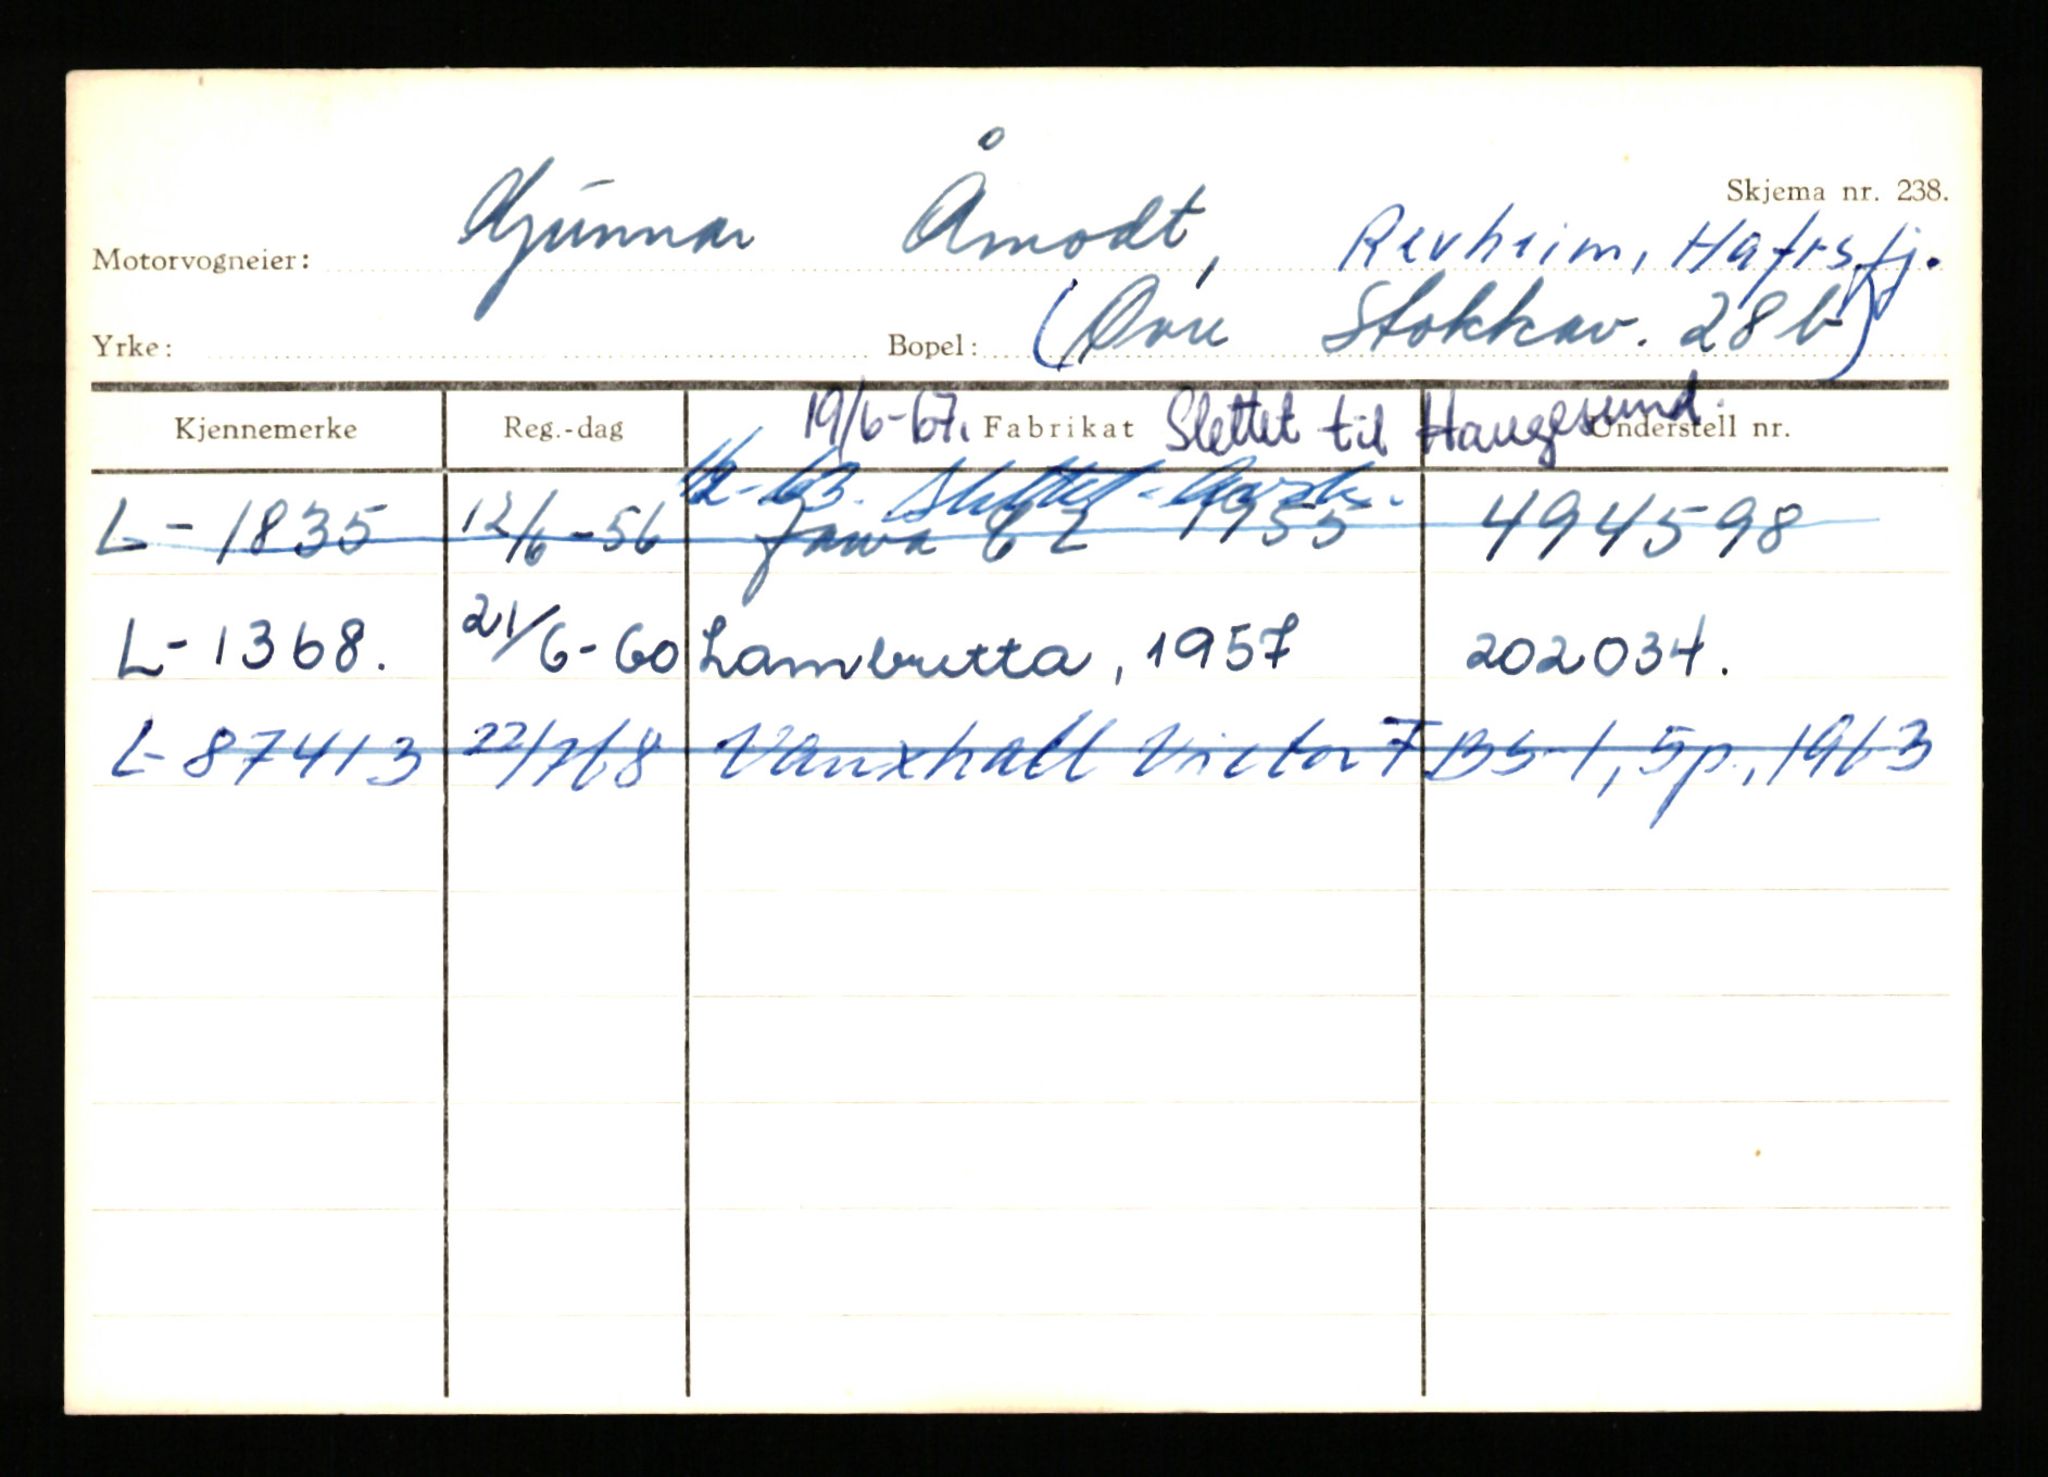 Skjema nr. 238.
Motorvogneier: Gunnar Åmodt, Revheim, Hafrsfj.
Yrke: Bopel: (Øvre Stokkav. 28 b)
19/6-67. Slettet til Haugesund.
Kjennemerke Reg.-dag Fabrikat Understell nr.
Slettet
L-1835 12/6-56 Jawa CZ 1955 494598
L-1368. 21/6-60 Lambretta, 1957 202034.
L-87413 Vauxhall Victor FBS-1, 5p., 1963